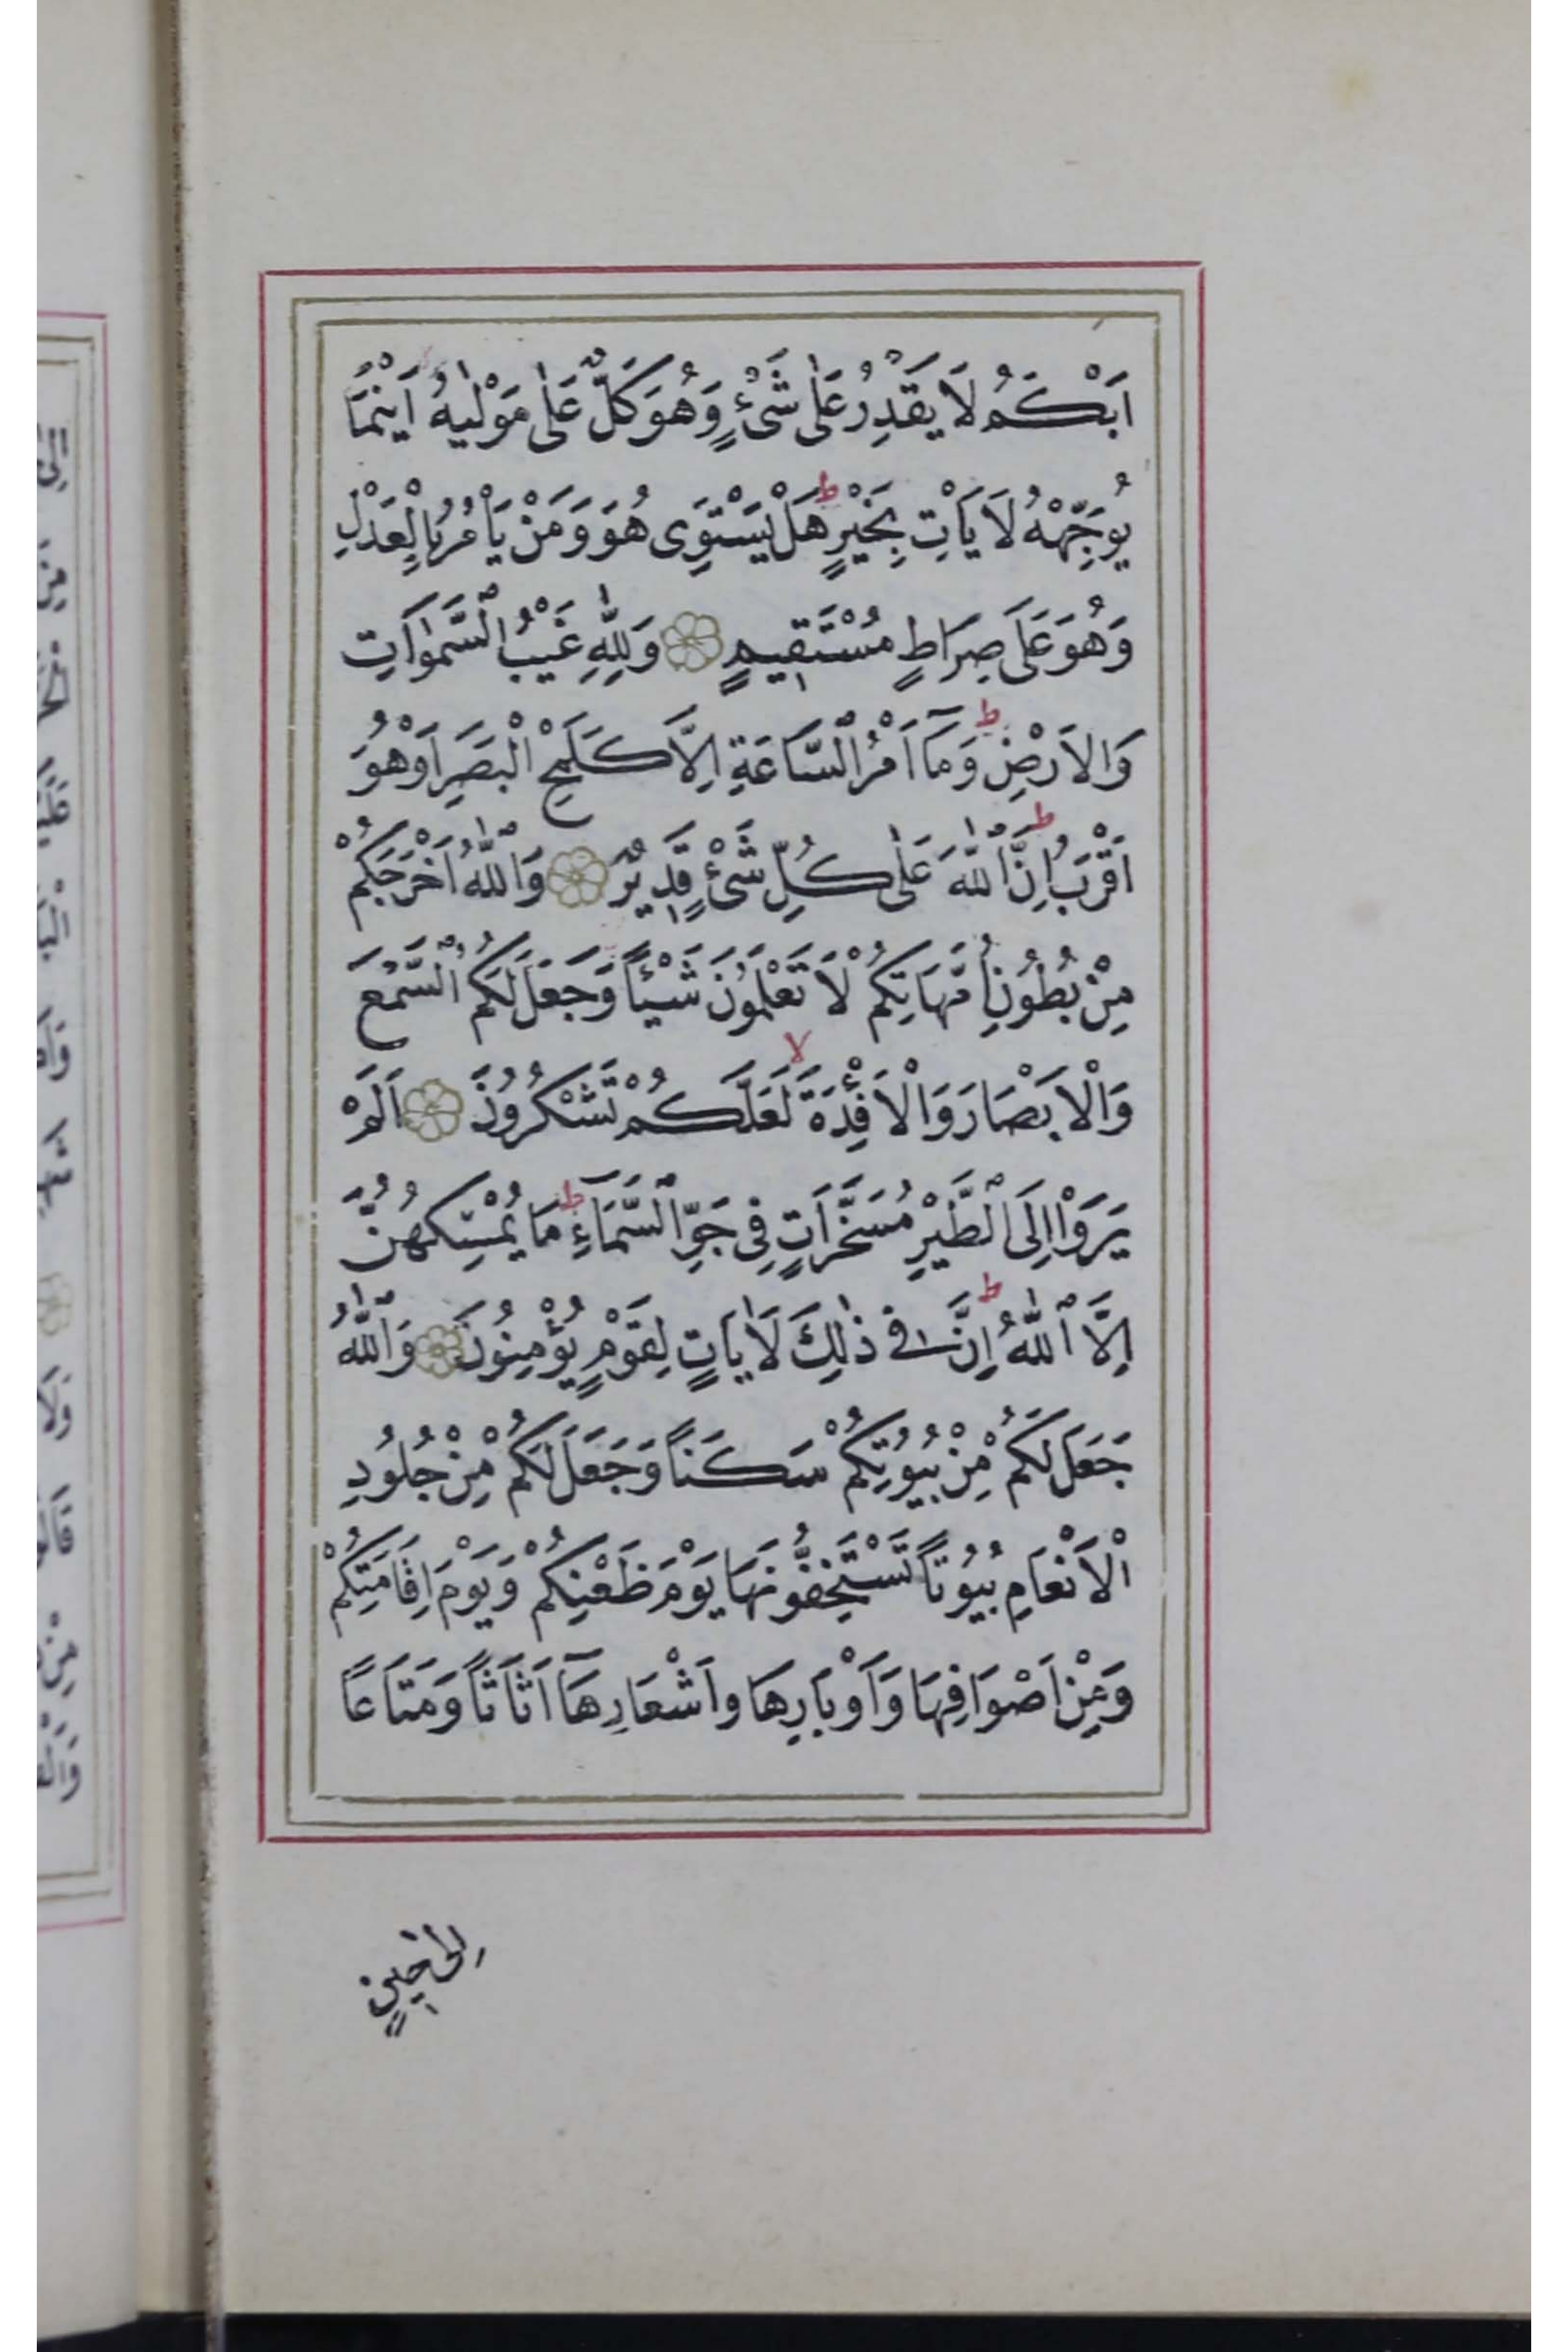 اَبْكَمُ لَا يَقْدِرُ عَلٰى شَىْءٍ وَهُوَ كَلٌّ عَلٰى مَوْلٰيهُ اَيْنَمَا
يُوَجِّهْهُ لَا يَأْتِ بِخَيْرٍ ط هَلْ يَسْتَوِى هُوَ وَمَنْ يَأْمُرُ بِالْعَدْلِ
وَهُوَ عَلَى صِرَاطٍ مُسْتَقِيمٍ وَلِلّٰهِ غَيْبُ السَّمٰوَاتِ
وَالاَرْضِ ط وَمَآ اَمْرُ السَّاعَةِ اِلَّا كَلَمْحِ الْبَصَرِ اَوْهُوَ
اَقْرَبُ ط اِنَّ اللّٰهَ عَلٰى كُلِّ شَىْءٍ قَدِيرٌ وَاللّٰهُ اَخْرَجَكُمْ
مِنْ بُطُونِ اُمَّهَاتِكُمْ لَا تَعْلَمُونَ شَيْئًا وَجَعَلَ لَكُمُ السَّمْعَ
وَالْاَبْصَارَ وَالْاَفْئِدَةَ لا لَعَلَّكُمْ تَشْكُرُونَ اَلَمْ
يَرَوْا اِلَى الطَّيْرِ مُسَخَّرَاتٍ فِى جَوِّ السَّمَآءِ ط مَا يُمْسِكُهُنَّ
اِلَّا اللّٰهُ ط اِنَّ فِى ذٰلِكَ لَاٰيَاتٍ لِقَوْمٍ يُؤْمِنُونَ وَاللّٰهُ
جَعَلَ لَكُمْ مِنْ بُيُوتِكُمْ سَكَنًا وَجَعَلَ لَكُمْ مِنْ جُلُودِ
الْاَنْعَامِ بُيُوتًا تَسْتَخِفُّونَهَا يَوْمَ ظَعْنِكُمْ وَيَوْمَ اِقَامَتِكُمْ
وَمِنْ اَصْوَافِهَا وَاَوْبَارِهَا واَشْعَارِهَآ اَثَاثًا وَمَتَاعًا
اِلٰى حِينٍ